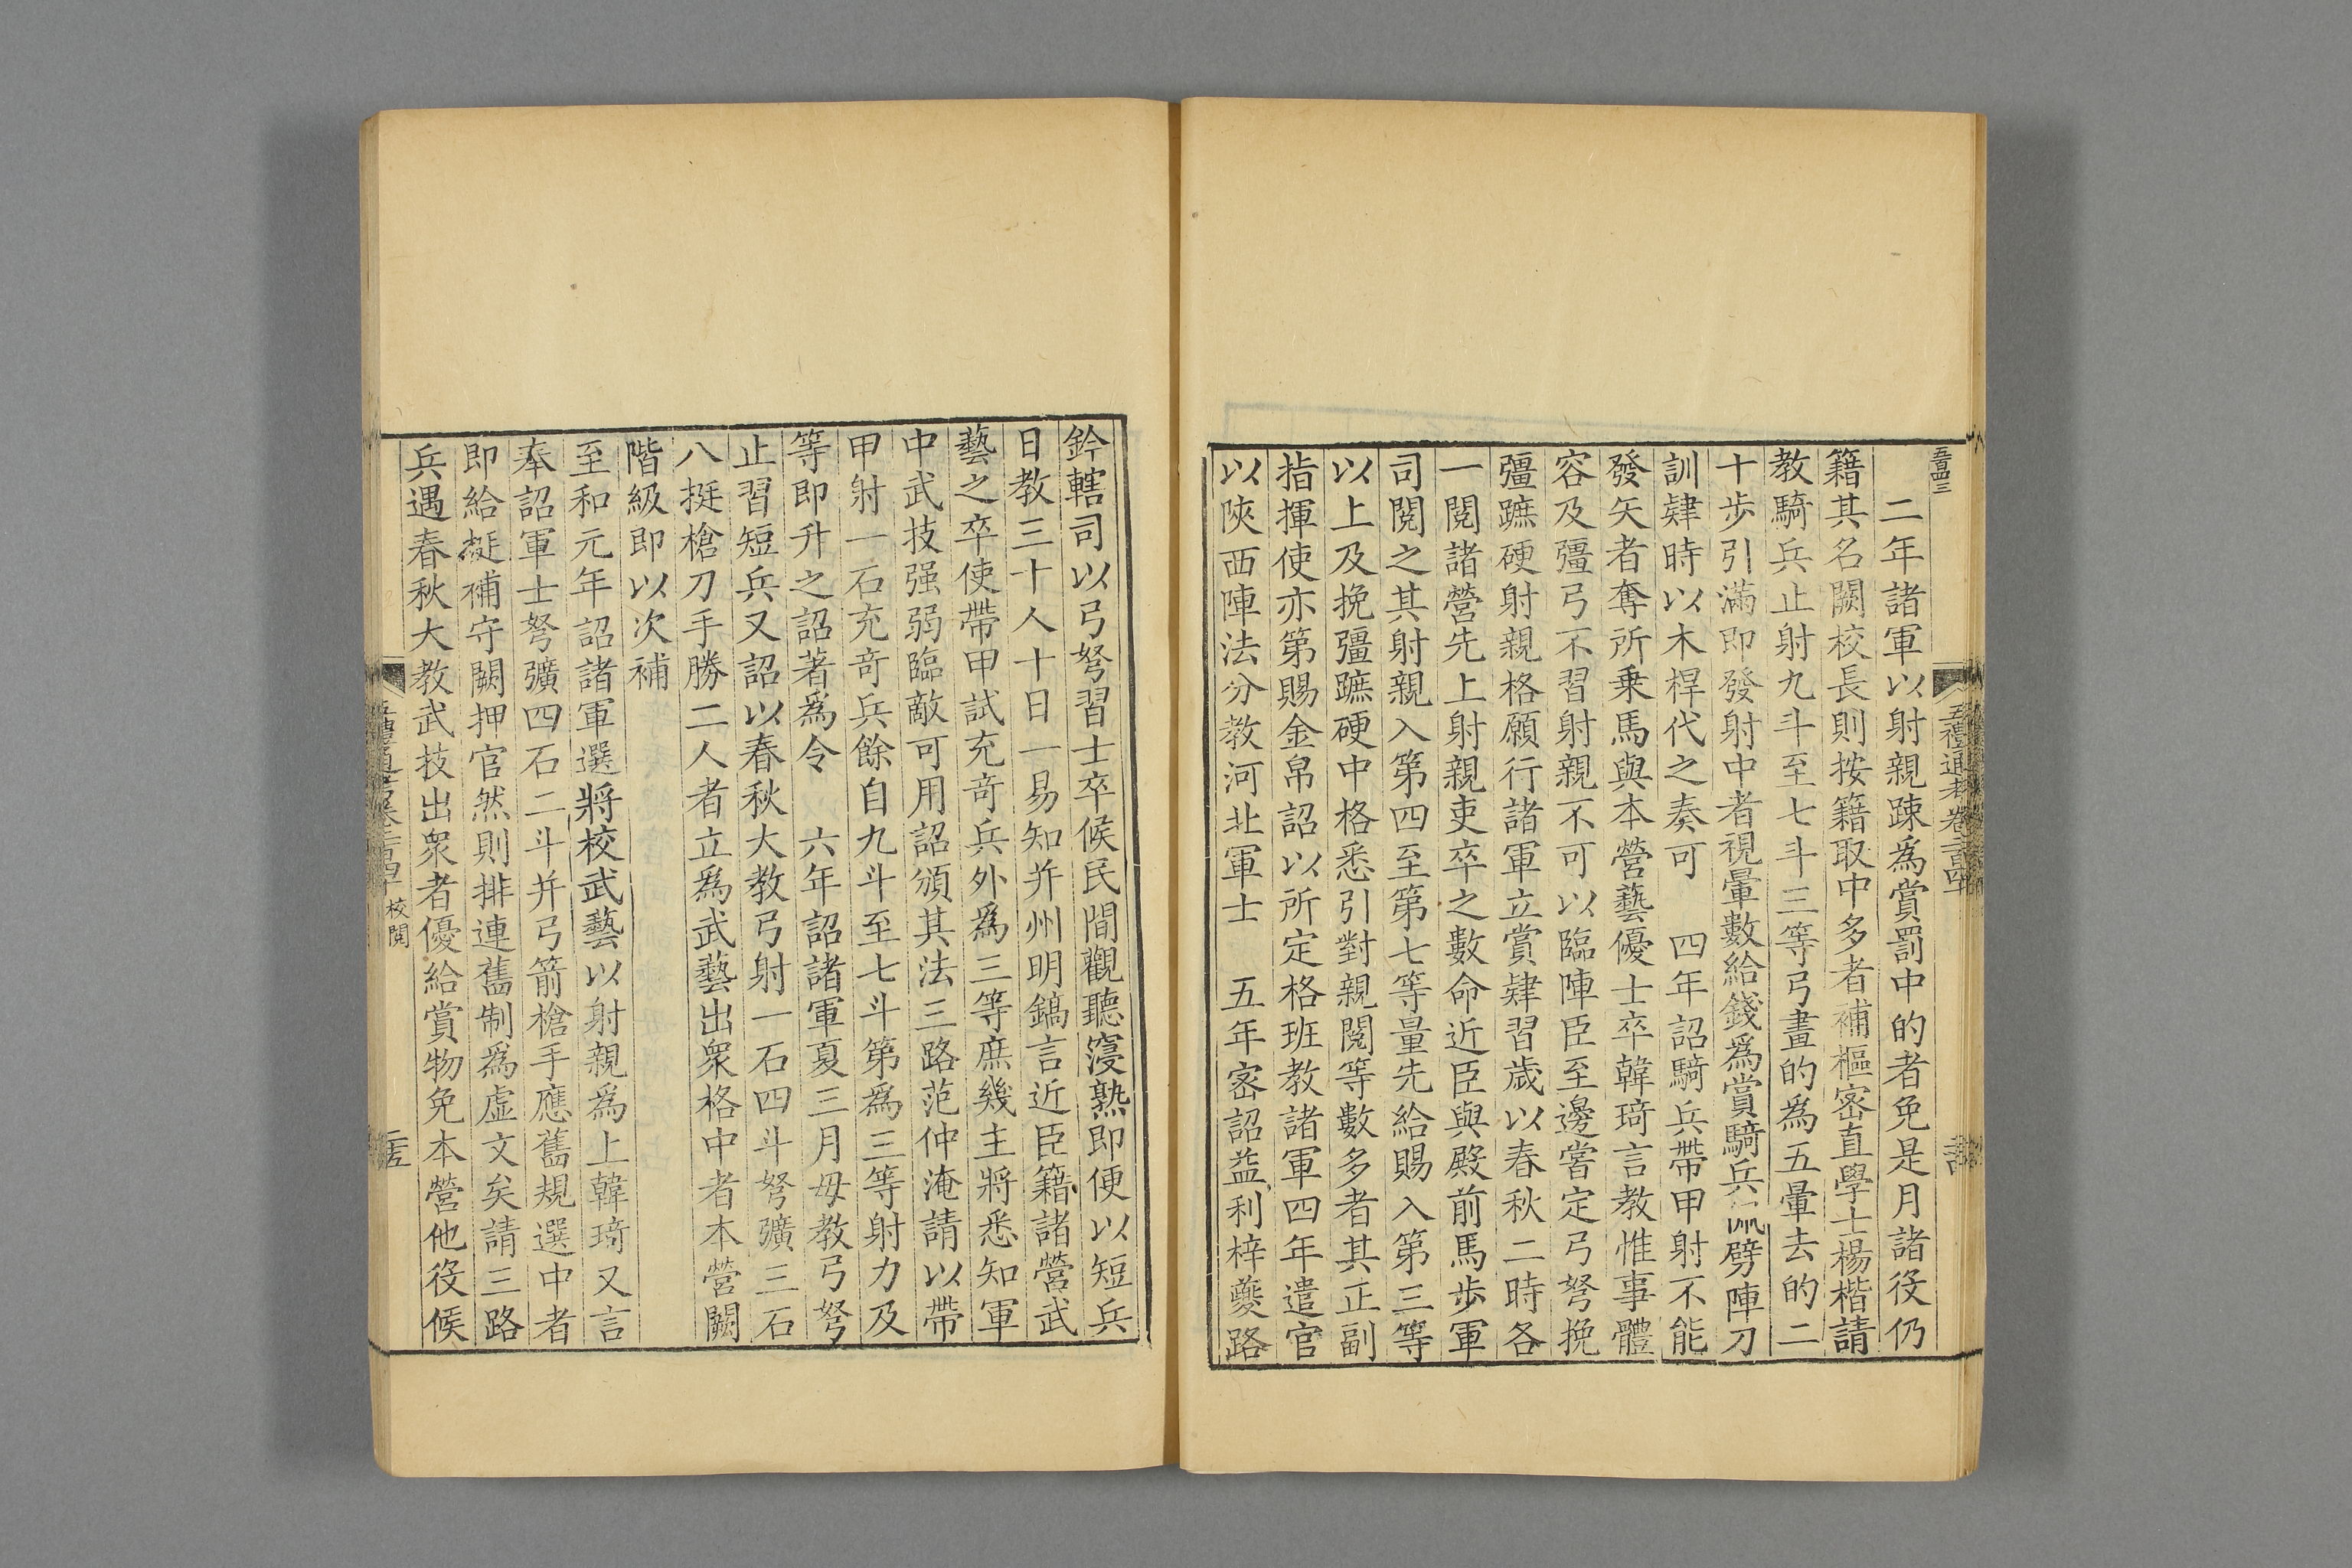 二年諸軍以射親疎爲賞罰中的者免是月諸役仍
籍其名闕校長則按籍取中多者補樞密直學士楊楷請
教騎兵止射九斗至七斗三等弓畫的爲五暈去的二
十步引滿即發射中者視暈數給錢爲賞騎兵佩劈陣刀
訓肄時以木桿代之奏可　四年詔騎兵帶甲射不能
發矢者奪所乗馬與本營藝優士卒韓琦言教惟事體
容及彊弓不習射親不可以臨陣臣至邊嘗定弓弩挽
彊蹠硬射親格願行諸軍立賞肄習歲以春秋二時各
一閱諸營先上射親吏卒之數命近臣與殿前馬步軍
司閱之其射親入第四至第七等量先給賜入第三等
以上及挽彊蹠硬中格悉引對親閱等數多者其正副
指揮使亦第賜金帛詔以所定格班教諸軍四年遣官
以陝西陣法分教河北軍士　五年密詔益利梓夔路
鈐轄司以弓弩習士卒候民間觀聽寖熟即便以短兵
日教三十人十日一易知并州明鎬言近臣籍諸營武
藝之卒使帶甲試充竒兵外爲三等庶幾主將悉知軍
中武技强弱臨敵可用詔頒其法三路范仲淹請以帶
甲射一石充竒兵餘自九斗至七斗第爲三等射力及
等即升之詔著爲令　六年詔諸軍夏三月毋教弓弩
止習短兵又詔以春秋大教弓射一石四斗弩彍三石
八挺槍刀手勝二人者立爲武藝出衆格中者本營闕
階級即以次補
至和元年詔諸軍選將校武藝以射親爲上韓琦又言
奉詔軍士弩彍四石二斗并弓箭槍手應舊規選中者
即給挺補守闕押官然則排連舊制爲虛文矣請三路
兵遇春秋大教武技出衆者優給賞物免本營他役候
五禮通考卷二百四十
校閱